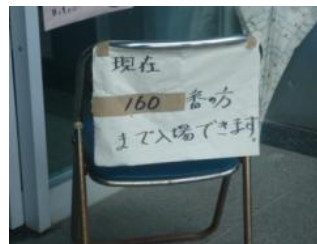 現在
160番の方
まで入場できます。